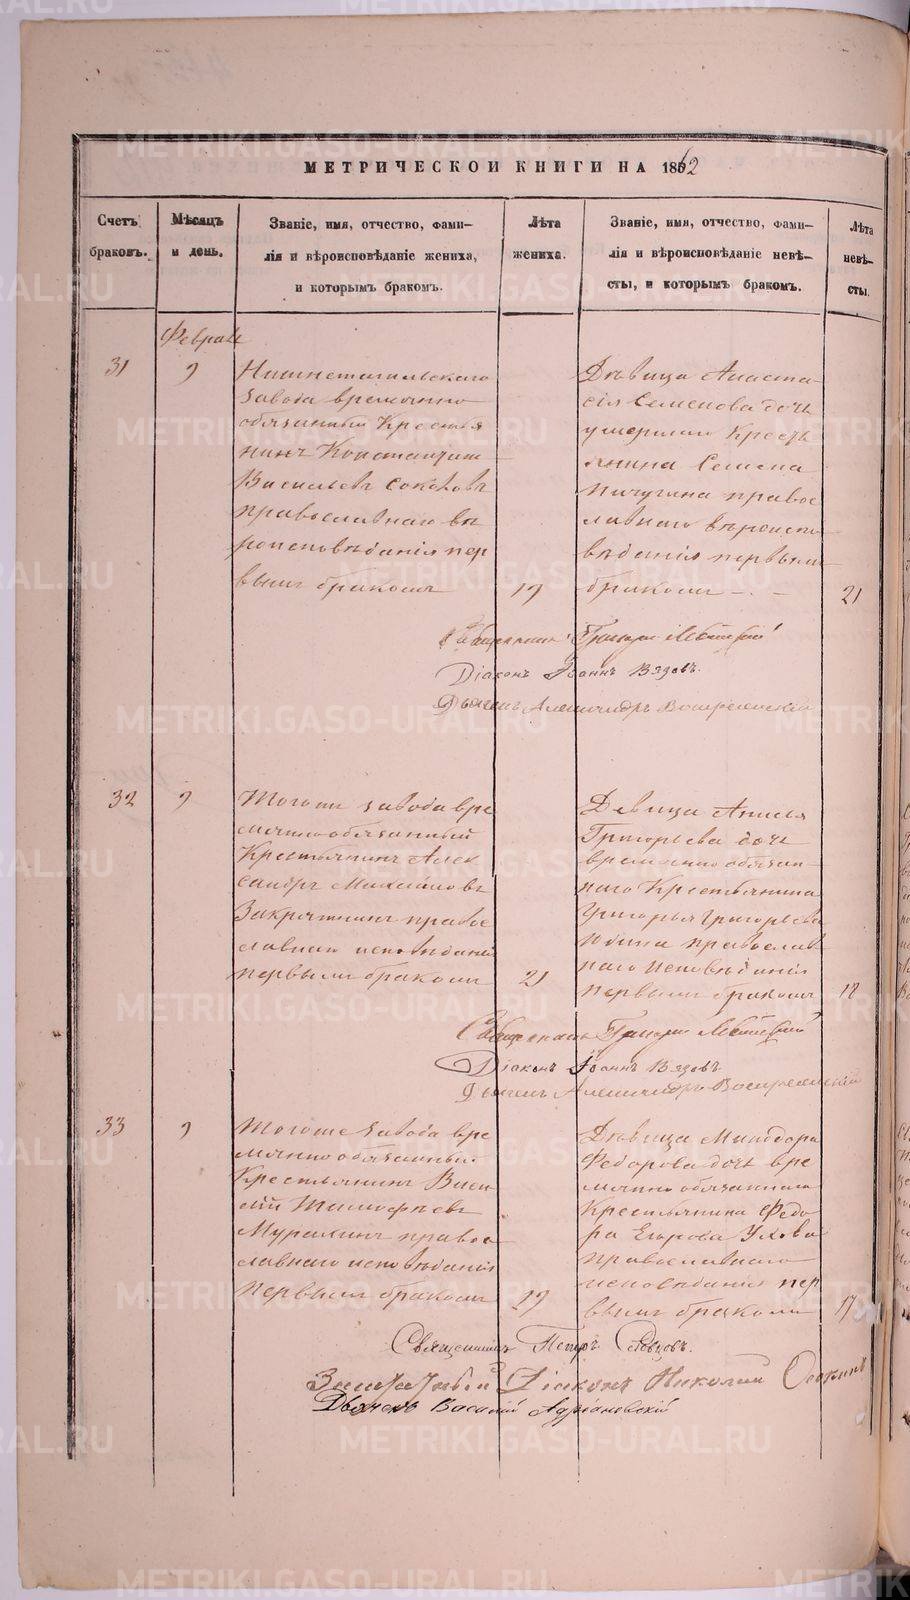 МЕТРИЧЕСКОЙ КНИГИ НА 1862
Счетъ браковъ.
Мѣсяцъ и день.
Званіе, имя, отчество, фами-
лія и вѣроисповѣданіе жениха,
и которымъ бракомъ.
Лѣта жениха.
Званіе, имя, отчество, фами-
лія и вѣроисповѣданіе невѣ-
сты, и которымъ бракомъ.
Лѣта невѣ-
сты.
Февраль
31
9
Нижнетагильскаго
завода временно
обязанный Крестья
нинъ Константинъ
Васильевъ Соколовъ
православнаго вѣ
роисповѣданія пер
вымъ бракомъ
19
Дѣвица Анаста
сія Семенова дочь
умершаго Кресть
янина Семена
Пичугина правос
лавнаго вѣроиспо
вѣданія первымъ
бракомъ
21
Священникъ Григорій
Діаконъ Іоаннъ Вязовъ.
Дьячекъ Александръ Воскресенскій
32
9
Тогоже завода вре
менно обязанный
Крестьянинъ Алек
сандръ Михайловъ
правос
лавнаго исповѣданія
первымъ бракомъ
21
Девица Анисья
Григорьева дочь
временно обязан
наго Крестьянина
Григорья Григорьева
Юдина православ
наго исповѣданія
первымъ бракомъ
18
Священникъ Григорій
Діаконъ Іоаннъ Вязовъ
Дьячекъ Александръ Воскресенскій
33
9
Тогоже завода вре
менно обязанный
Крестьянинъ Васи
лій Тимофѣевъ
правос
лавнаго исповѣданія
первымъ бракомъ
19
Дѣвица Минодора
Федорова дочь вре
менно обязаннаго
Крестьянина Федо
ра Егорова
православнаго
исповѣданія пер
вымъ бракомъ
17
Священникъ Петръ
Діаконъ Николай
Дьячекъ Василій Адриановскій
METRIKI.GASO-URAL.RU